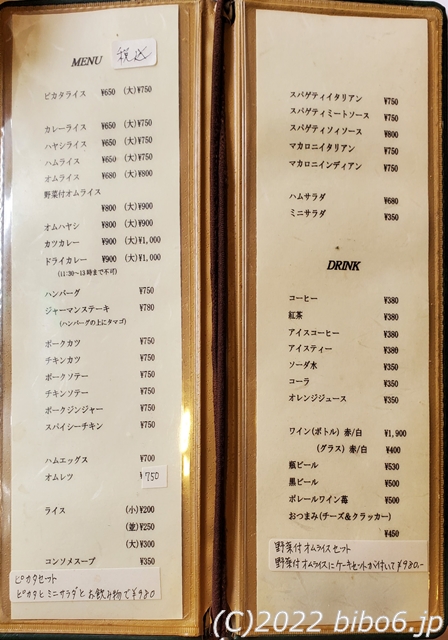 MENU 税込
ピカタライス ¥650 (大)¥750
カレーライス ¥650 (大)¥750
ハヤシライス ¥650 (大)¥750
ハムライス ¥650 (大)¥750
オムライス ¥680 (大)¥800
野菜付オムライス
¥800 (大)¥900
オムハヤシ ¥800 (大)¥900
カツカレー ¥900 (大)¥1,000
ドライカレー ¥900 (大)¥1,000
(11:30～13時まで不可)
ハンバーグ ¥750
ジャーマンステーキ ¥780
(ハンバーグの上にタマゴ)
ポークカツ ¥750
チキンカツ ¥750
ポークソテー ¥750
チキンソテー ¥750
ポークジンジャー ¥750
スパイシーチキン ¥750
ハムエッグス ¥700
オムレツ ¥750
ライス (小)¥200
(並)¥250
(大)¥300
コンソメスープ ¥350
ピカタセット
ピカタとミニサラダとお飲み物で¥980
スパゲティイタリアン ¥750
スパゲティミートソース ¥750
スパゲティソイソース ¥800
マカロニイタリアン ¥750
マカロニインディアン ¥750
ハムサラダ ¥680
ミニサラダ ¥350
DRINK
コーヒー ¥380
紅茶 ¥380
アイスコーヒー ¥380
アイスティー ¥380
ソーダ水 ¥350
コーラ ¥350
オレンジジュース ¥350
ワイン(ボトル) 赤/白 ¥1,900
(グラス) 赤/白 ¥400
瓶ビール ¥530
黒ビール ¥500
ポレールワイン苺 ¥500
おつまみ(チーズ&クラッカー)
¥450
野菜付オムライスセット
野菜付オムライスにケーキセットが付いて¥980.-
(C)2022 bibo6.jp